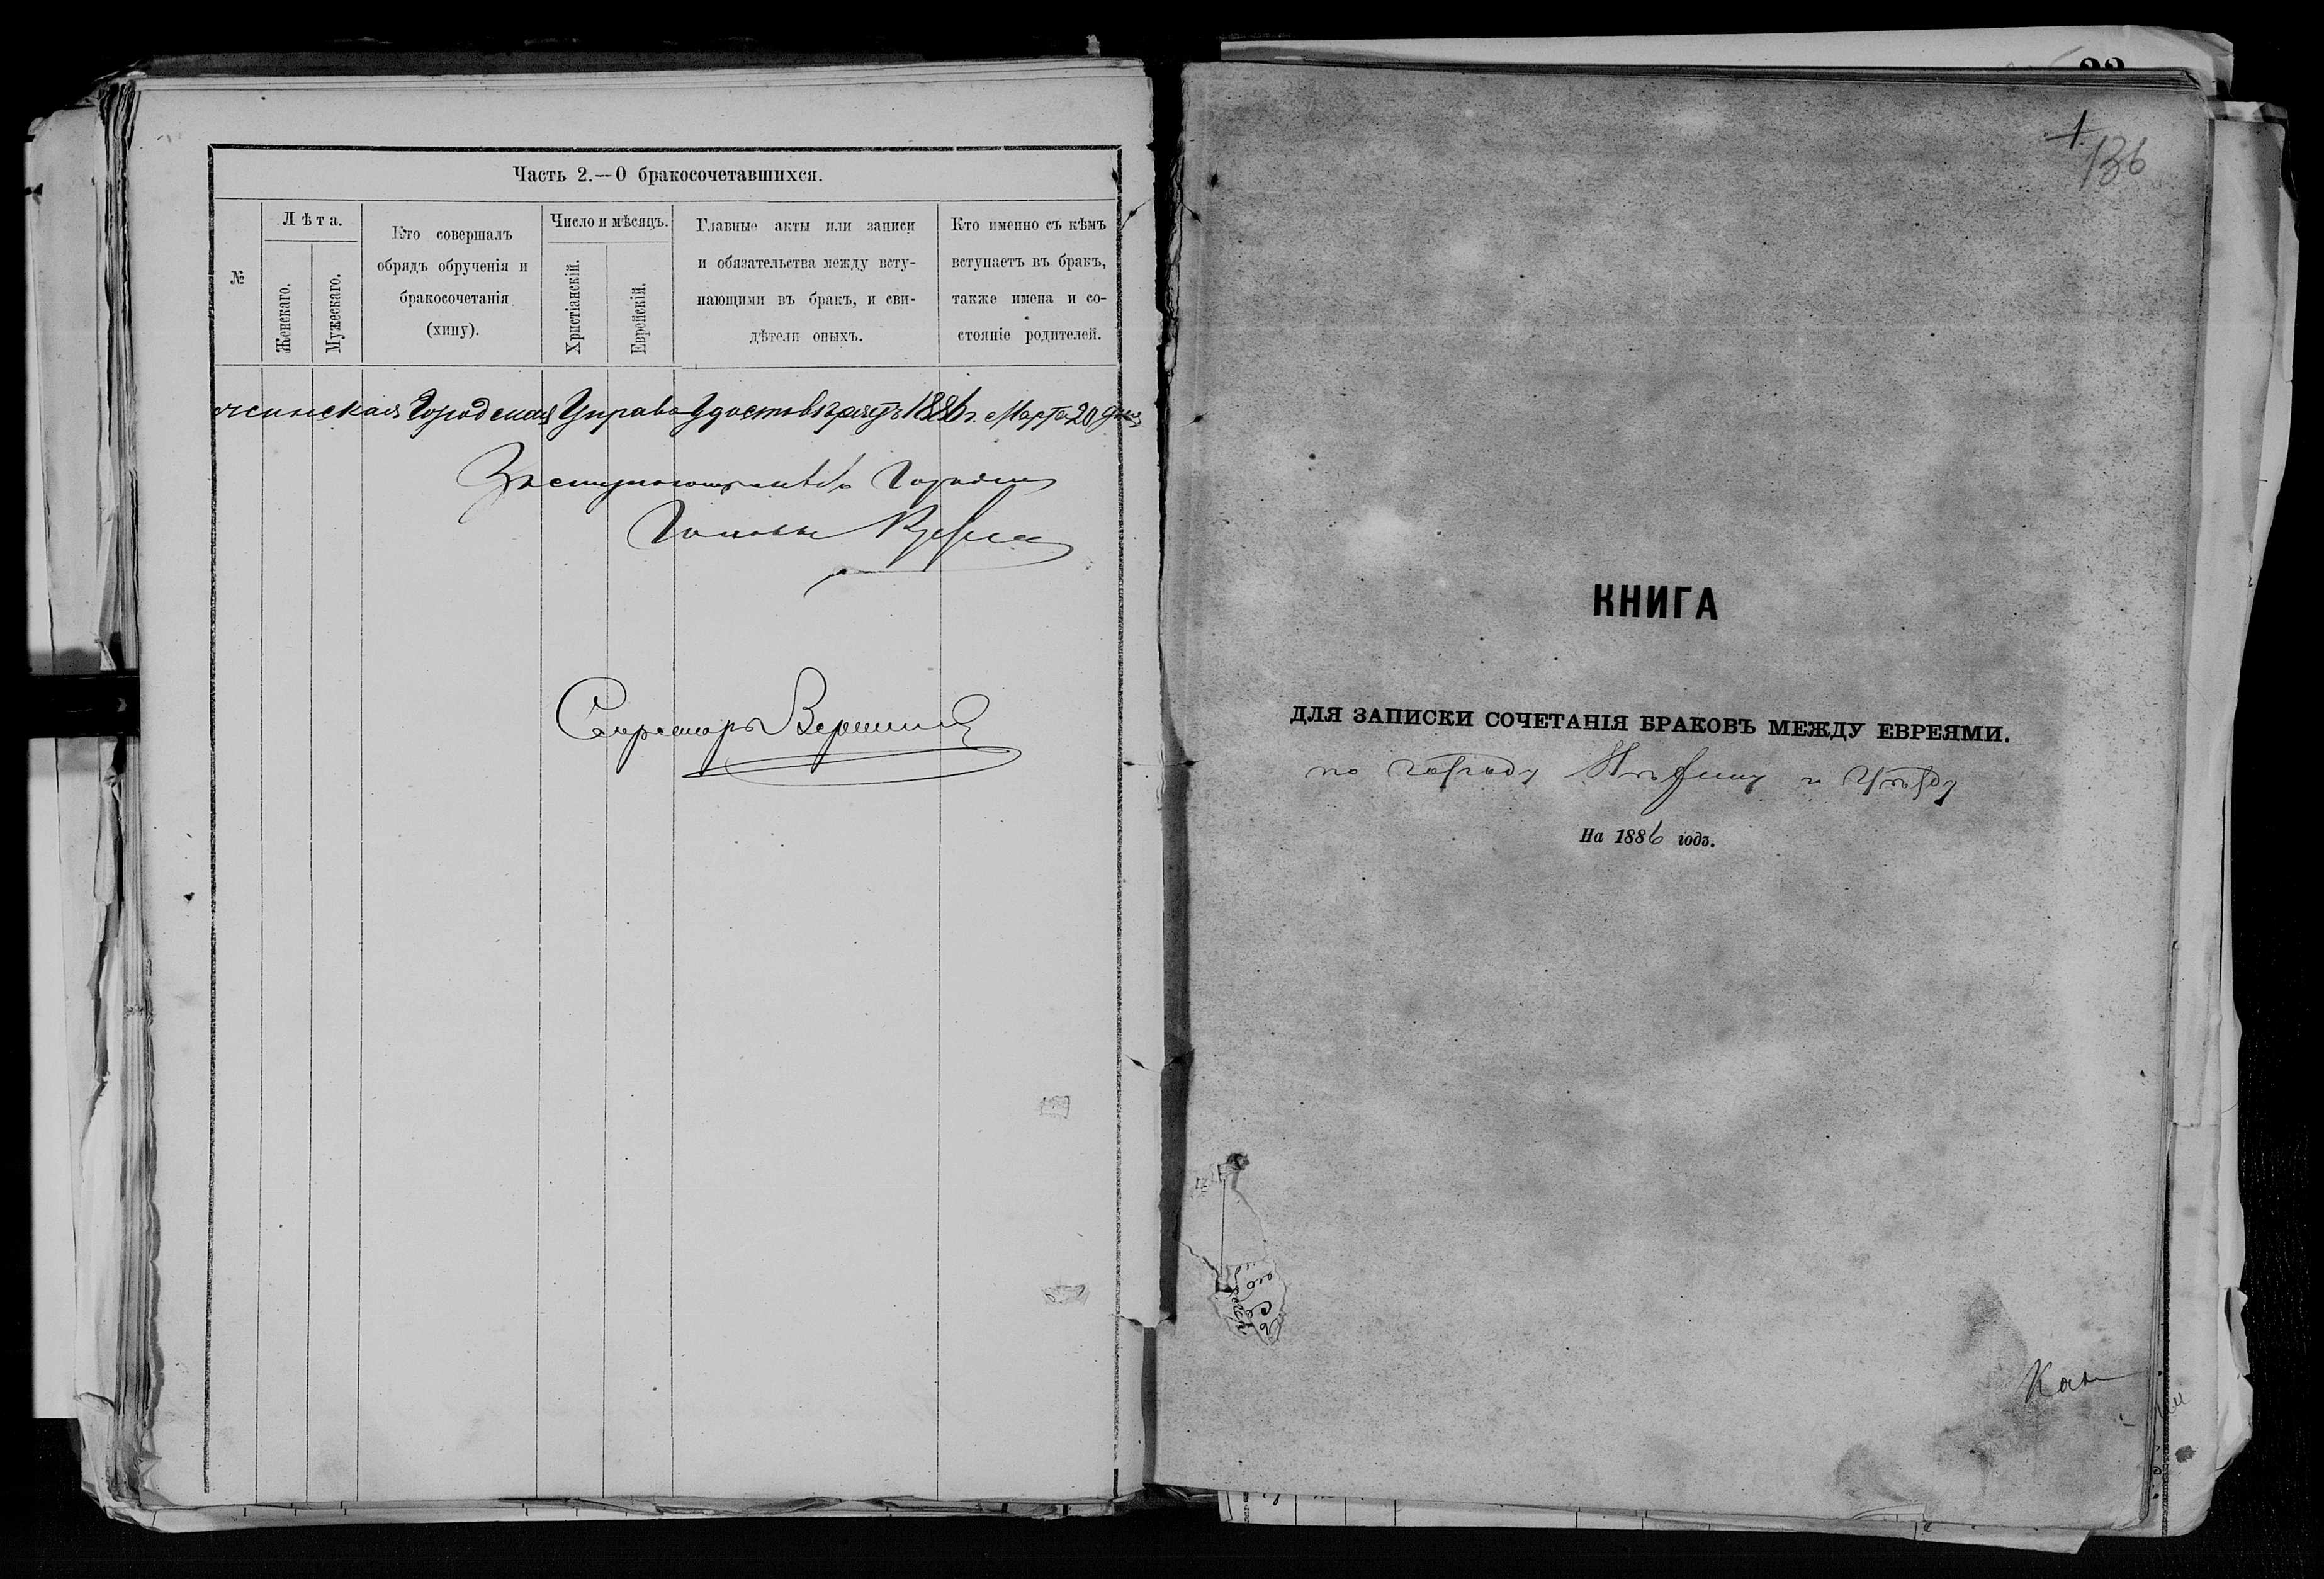 Часть 2.—О бракосочетавшихся.
№
Лѣта.
Женскаго.
Мужескаго.
Кто совершалъ
обрядъ обрученія и
бракосочетанія
(хипу).
Число и мѣсяцъ.
Христіанскій.
Еврейскій.
Главные акты или записи
и обязательства между всту-
пающими въ бракъ, и сви-
дѣтели оныхъ.
Кто именно съ кѣмъ
вступаетъ въ бракъ,
также имена и со-
стояніе родителей.
Городская Управа Удостовѣряетъ 1886 г. Марта 20 дня
Головы
Секретарь
1.
136
КНИГА
ДЛЯ ЗАПИСКИ СОЧЕТАНІЯ БРАКОВЪ МЕЖДУ ЕВРЕЯМИ.
по городу Нѣжину и Уѣзду
На 1886 годъ.